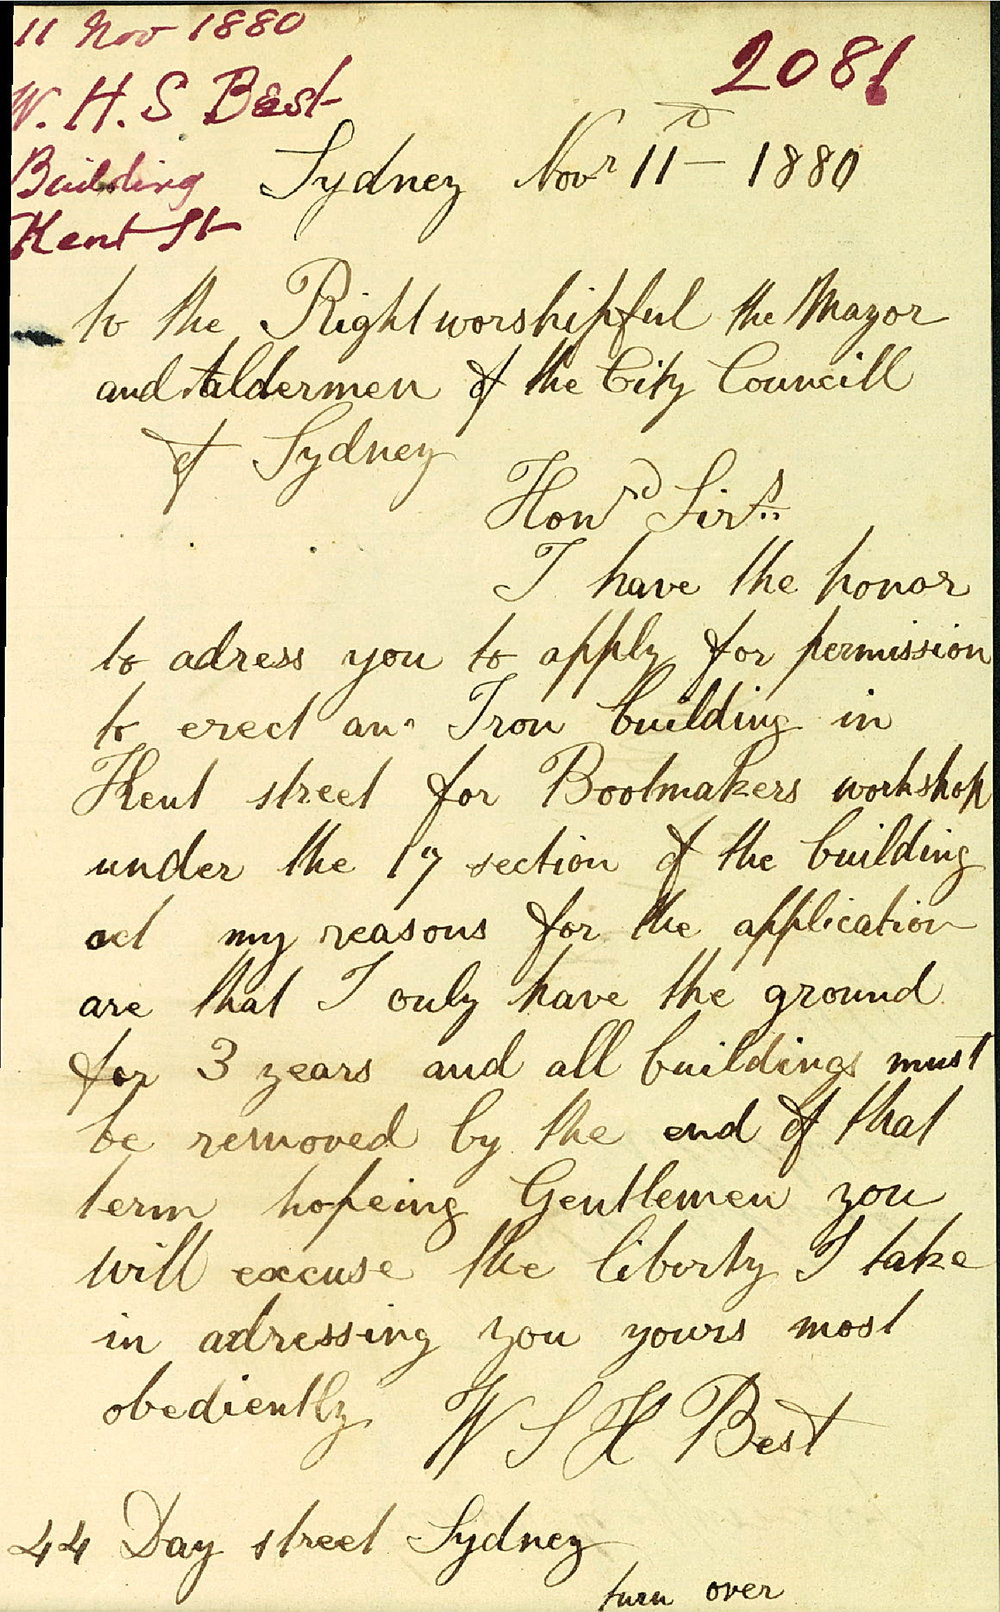 11 Nov 1880
2081
W. H. S Best
Building
Kent St
Sydney Novr 11th 1880
to the Right worshipful the Mayor
and aldermen of the City Councill
of Sydney
Hond Sirs
I have the honor
to adress you to apply for permission
to erect an Iron building in
Kent street for Bootmakers workshop
under the 17 section of the building
act my reasons for the application
are that I only have the ground
for 3 years and all buildings must
be removed by the end of that
term hopeing Gentlemen you
will excuse the liberty I take
in adressing you yours most
obediently W S H Best
44 Day street Sydney
turn over